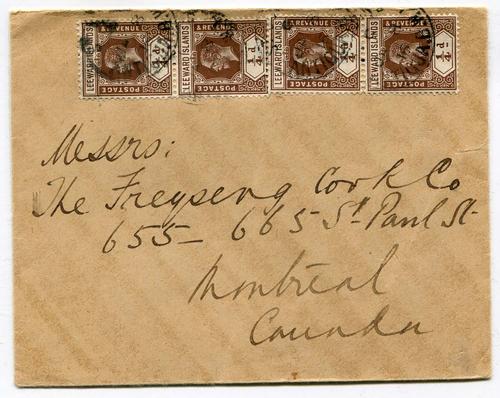 & REVENUE
LEEWARD ISLANDS
¼d
POSTAGE
& REVENUE
LEEWARD ISLANDS
¼d
POSTAGE
& REVENUE
LEEWARD ISLANDS
¼d
POSTAGE
& REVENUE
LEEWARD ISLANDS
¼d
POSTAGE
Messrs:
The Freyseng Cork Co
655– 665 St Paul St-
Montreal
Canada